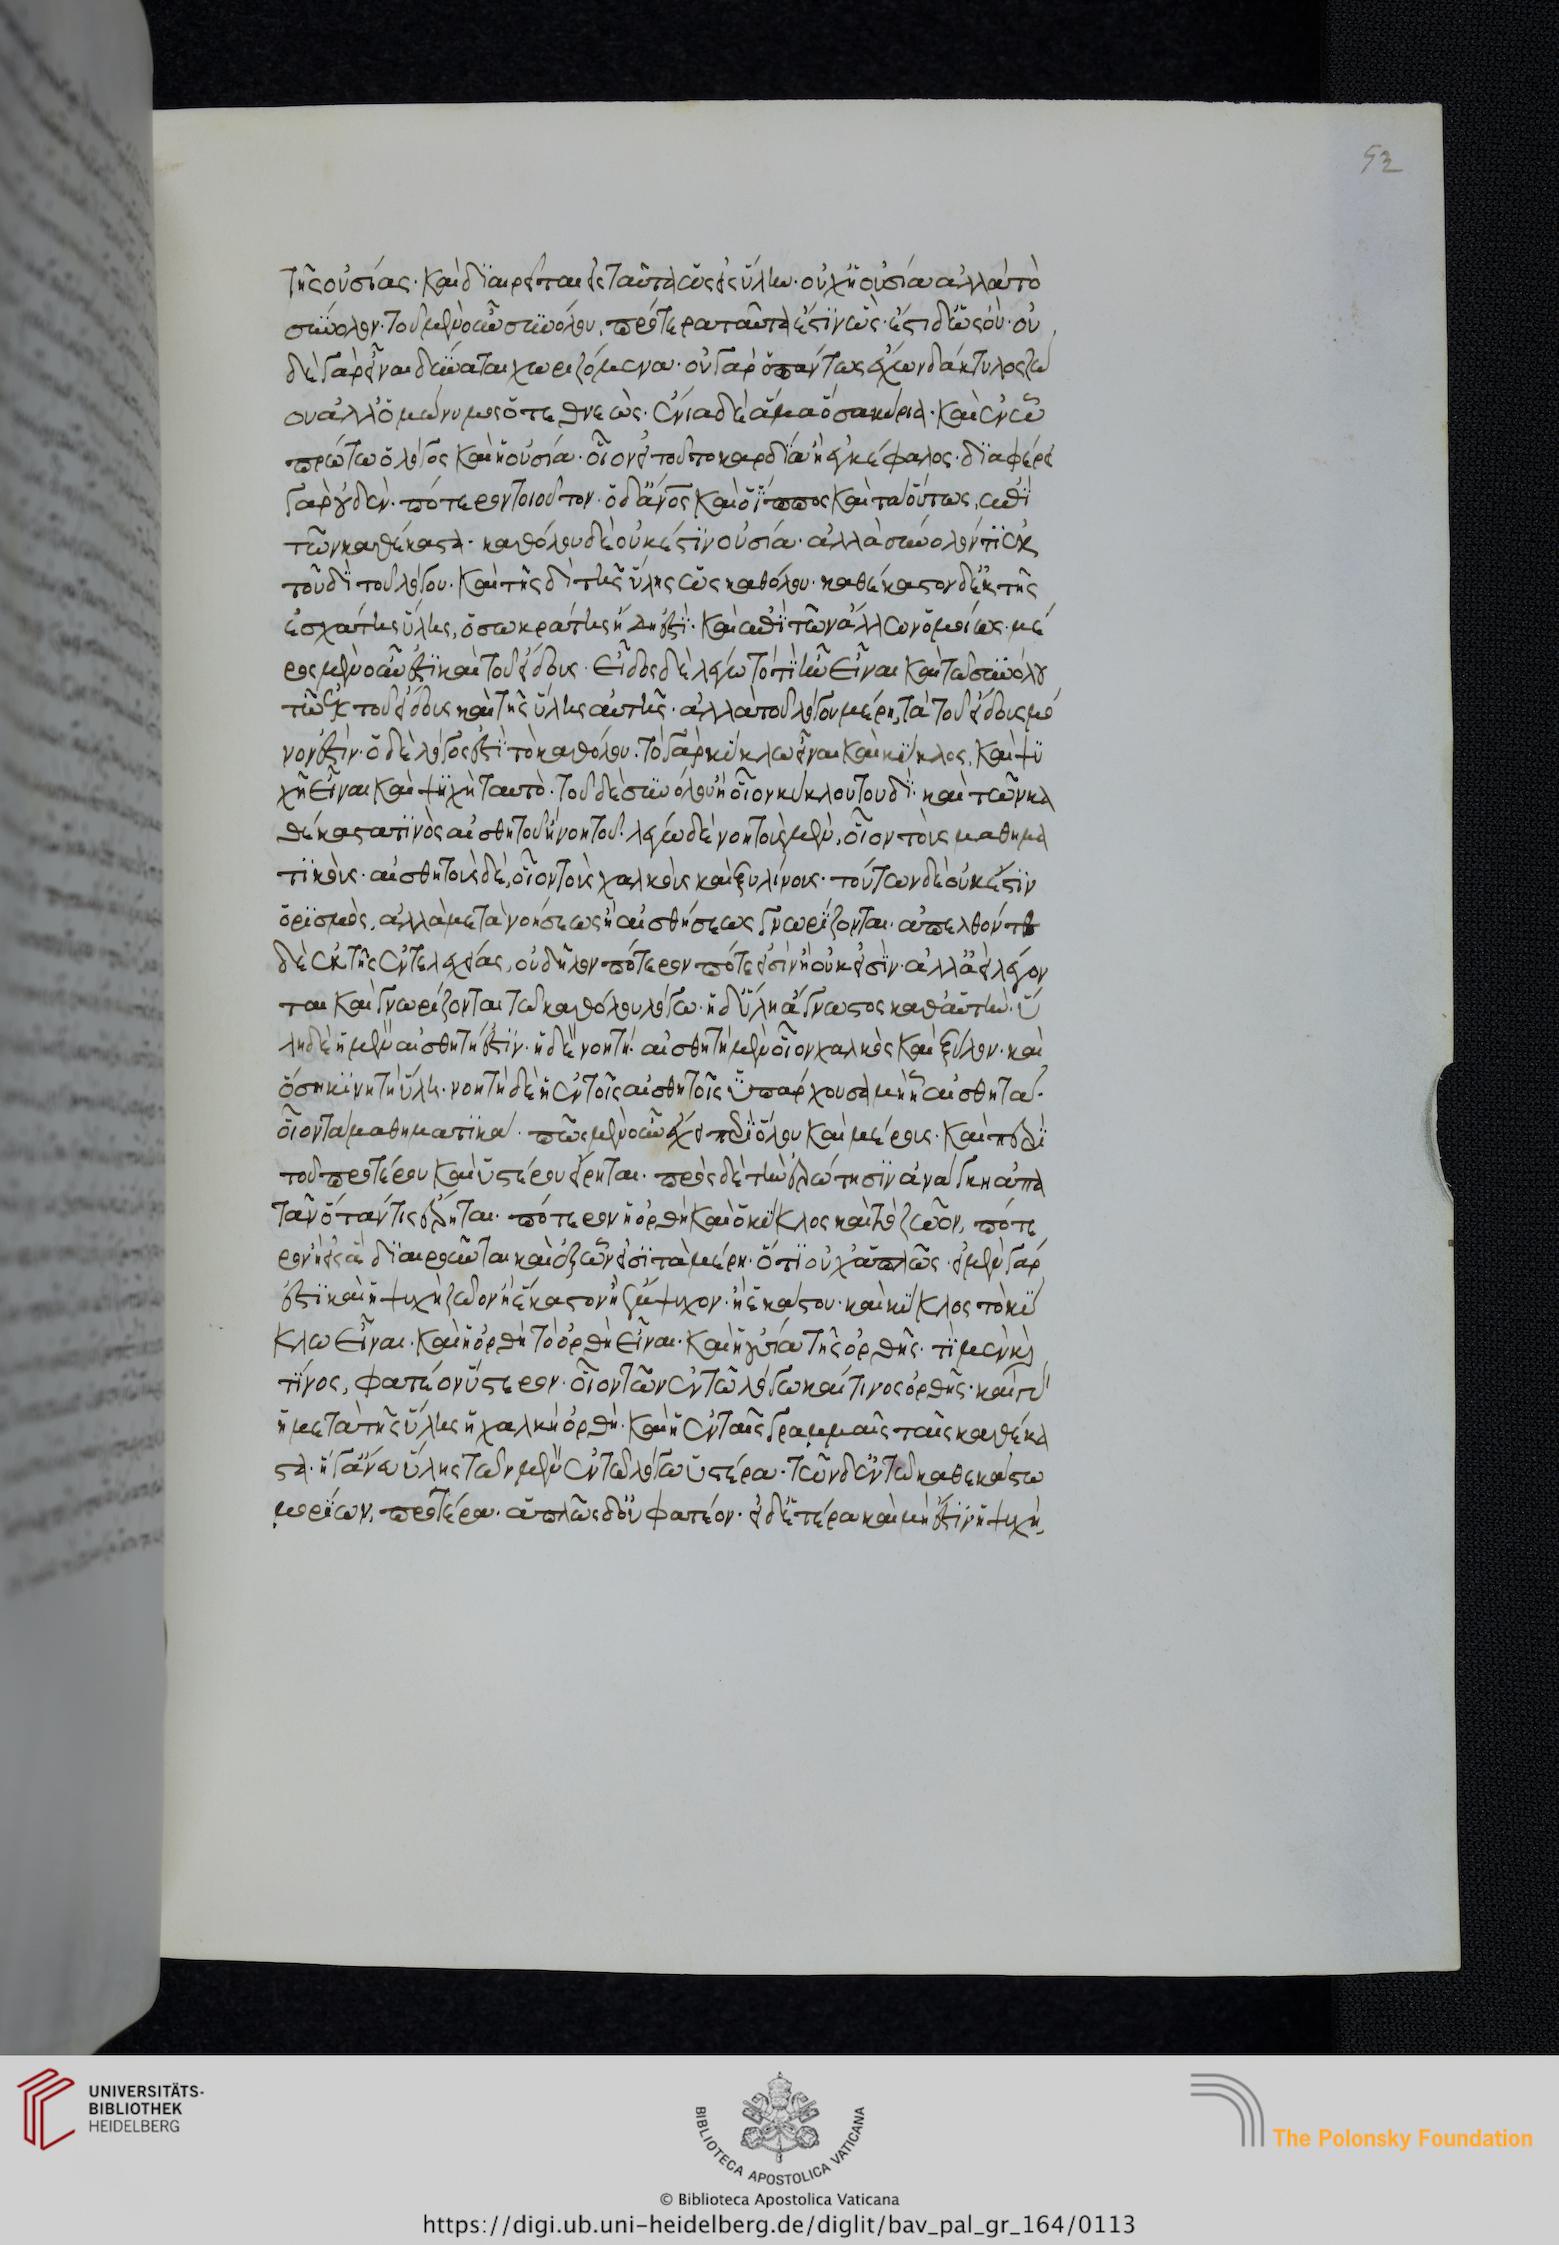 53
τῆς οὐσίας· καὶ διαιρεῖται εἰς ταῦτα ὡς εἰς ὕλην· οὐχ ἡ οὐσία ἀλλὰ τὸ
σύνολον· τοῦ μὲν οὖν συνόλου, πρότερα ταῦτα ἐστὶν ὡς· ἔστι δ' ὡς οὔ· οὐ
δὲ γὰρ εἶναι δύναται χωριζόμενα· οὐ γὰρ ὁ πάντως ἔχων δάκτυλος ζώ
ου ἀλλ' ὁμώνυμος ὁ τεθνεώς· ἔνια δὲ ἅμα ὅσα κύρια· καὶ ἐν ᾧ
πρώτω ὁ λόγος καὶ ἡ οὐσία· οἷον εἰ τοῦτο καρδία ἢ ἐγκέφαλος· διαφέρει
γὰρ οὐδὲν πότερον τοιοῦτον· ὁ δ' ἄνος καὶ ὁ ἵππος καὶ τὰ οὕτως, ἐπὶ
τῶν καθέκαστα· καθόλου δὲ οὐκ ἔστιν οὐσία· ἀλλὰ σύνολόν τι ἐκ
τοῦδὶ τοῦ λόγου· καὶ τῆς δὶ τῆς ὕλης ὡς καθόλου· καθέκαστον δ' ἐκ τῆς
ἐσχάτης ὕλης, ὁ σωκράτης ἤδη ἐστί· καὶ ἐπὶ τῶν ἄλλων ὁμοίως· μέ
ρος μὲν οὖν ἐστὶ καὶ τοῦ εἴδους· εἶδος δὲ λέγω τὸ τί ἦν εἶναι καὶ τοῦ συνόλου
τοῦ ἐκ τοῦ εἴδους καὶ τῆς ὕλης αὐτῆς· ἀλλὰ τοῦ λόγου μέρη, τὰ τοῦ εἴδους μό
νον ἐστίν· ὁ δὲ λόγος ἐστὶ τὸ καθόλου· τὸ γὰρ κύκλω εἶναι καὶ κύκλος, καὶ ψυ
χῇ εἶναι καὶ ψυχὴ ταυτὸ· τοῦ δὲ συνόλου ἢ οἷον κύκλου τουδὶ· καὶ τῶν κα
θέκαστα τινὸς αἰσθητοῦ ἢ νοητοῦ· λέγω δὲ νοητοὺς μὲν, οἷον τοὺς μαθημα
τικούς· αἰσθητοὺς δὲ, οἷον τοὺς χαλκοὺς καὶ ξυλίνους· τούτων δὲ οὐκ ἔστιν
ὁρισμὸς, ἀλλὰ μετὰ νοήσεως ἢ αἰσθήσεως γνωρίζονται· ἀπελθόντ
δὲ ἐκ τῆς ἐντελεχείας, οὐ δῆλον πότερον πότε εἰσὶν ἢ οὐκ εἰσίν· ἀλλ' ἀεὶ λέγον
ται καὶ γνωρίζονται τῶ καθόλου λόγω· ἡ δ' ὕλη ἄγνωστος καθ' αὑτήν· ὕ
λη δὲ ἡ μὲν αἰσθητή ἐστιν· ἡ δὲ νοητή· αἰσθητὴ μὲν οἷον χαλκὸς καὶ ξύλον· καὶ
ὅση κινητὴ ὕλη· νοητὴ δὲ ἡ ἐν τοῖς αἰσθητοῖς ὑπάρχουσα μὴ ᾗ αἰσθητά·
οἷον τὰ μαθηματικά· πῶς μὲν οὖν ἔχει περὶ ὅλου καὶ μέρους· καὶ περὶ
τοῦ προτέρου καὶ ὑστέρου εἴρηται· πρὸς δὲ τὴν ἐρώτησιν ἀνάγκη ἀπα
ταν ὅταν τις ἔρηται· πότερον ἡ ὀρθὴ καὶ ὁ κύκλος καὶ τὸ ζῶον, πότε
ρον ἢ εἰς ἃ διαιροῦνται καὶ ἐξ ὧν εἰσὶ τὰ μέρη· ὅτι οὐχ ἁπλῶς· εἰ μὲν γάρ
ἐστι καὶ ἡ ψυχὴ ζῶον ἢ ἕκαστον ἢ ἔμψυχον· ἢ ἑκάστου· καὶ κύκλος τὸ κύ
κλω εἶναι· καὶ ἡ ὀρθὴ τὸ ὀρθῇ εἶναι· καὶ ἡ οὐσία τῆς ὀρθῆς· τὶ μὲν καὶ
τίνος, φατέον ὕστερον· οἷον τῶν ἐν τῷ λόγω καί τινος ὀρθῆς· καὶ γὰρ
ἡ μετὰ τῆς ὕλης ἡ χαλκῆ ὀρθὴ· καὶ ἡ ἐν ταῖς γραμμαῖς ταῖς καθέκα
στα· ἡ δ' ἄνευ ὕλης τῶν μὲν ἐν τῶ λόγω ὑστέρα· τῶν δ' ἐν τῶ καθέκαστω
μορίων, προτέρα· ἁπλῶς δ' οὐ φατέον· εἰ δ' ἑτέρα καὶ μὴ ἔστιν ἡ ψυχὴ
UNIVERSITÄTS-
BIBLIOTHEK
HEIDELBERG
BIBLIOTECA APOSTOLICA VATICANA
The Polonsky Foundation
© Biblioteca Apostolica Vaticana
https://digi.ub.uni-heidelberg.de/diglit/bav_pal_gr_164/0113